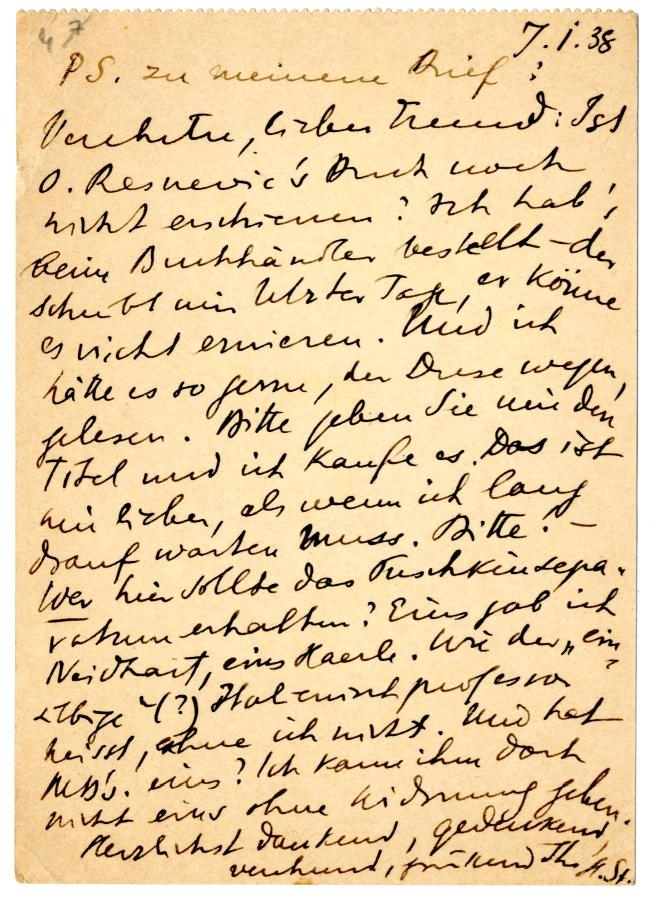 47
7.I.38
PS. zu meinem Brief:
Verehrter, lieber Freund: Ist
O. Resnevic's Buch noch
nicht erschienen? Ich hab's
beim Buchhändler bestellt – der
schreibt mir letzter Tage, er könne
es nicht eruieren. Und ich
hätte es so gerne, der Duse wegen,
gelesen. Bitte geben Sie mir den
Titel und ich kaufe es. Das ist
mir lieber, als wenn ich lang
drauf warten muss. Bitte! –
Wer hier sollte das Puschkinsepa-
ratum erhalten? Eins gab ich
Neidhart, eins Haerle. Wie der „ein-
silbige“ (?) Italienischprofessor
heisst, ahne ich nicht. Und hat
eins? Ich kann ihm doch
nicht eins ohne Widmung geben.
Herzlichst dankend, gedenkend,
verehrend, grüssend Ihr St.